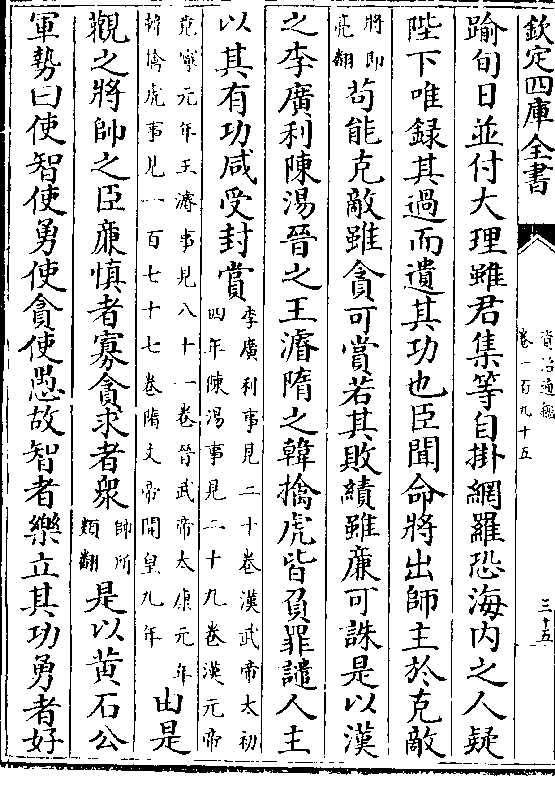 欽定四庫全書
資治通鑑
卷一百九十五
三十五
踰旬日並付大理雖君集等自掛網羅恐海内之人疑
陛下唯録其過而遺其功也臣聞命將出師主於克敵
將即亮翻苟能克敵雖貪可賞若其敗績雖廉可誅是以漢
之李廣利陳湯晉之王濬隋之韓擒虎皆負罪譴人主
以其有功咸受封賞李廣利事見二十卷漢武帝太初四年陳湯事見二十九卷漢元帝
竟寧元年王濬事見八十一卷晉武帝太康元年韓擒虎事見一百七十七卷隋文帝開皇九年由是
觀之將帥之臣廉慎者寡貪求者衆帥所類翻是以黄石公
軍勢曰使智使勇使貪使愚故智者樂立其功勇者好